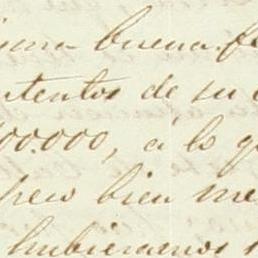 buena fe
intentos de su
00.000, á lo q
pero bien me
hubieramos